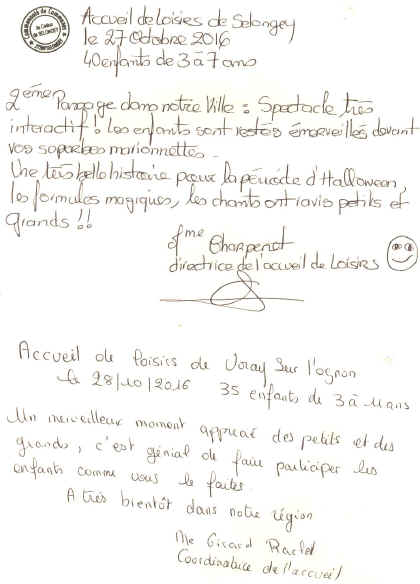 Communauté de Communes
Accueil de Loisirs de Selongey
le 27 Octobre 2016
40 enfants de 3 à 7 ans
2ème passage dans notre Ville : Spectacle très
interactif ! Les enfants sont restés émerveillés devant
vos superbes marionnettes.
Une très belle histoire pour la période d'Halloween,
les formules magiques, les chants ont ravis petits et
grands !!
Mme Charpenet
directrice de l'accueil de Loisirs
Accueil de loisirs de Voray sur l'ognon
le 28/10/2016 35 enfants de 3 à 11 ans
Un merveilleux moment apprécié des petits et des
grands, c'est génial de faire participer les
enfants comme vous le faites.
A très bientôt dans notre région
Me Girard Rachel
Coordinatrice de l'accueil